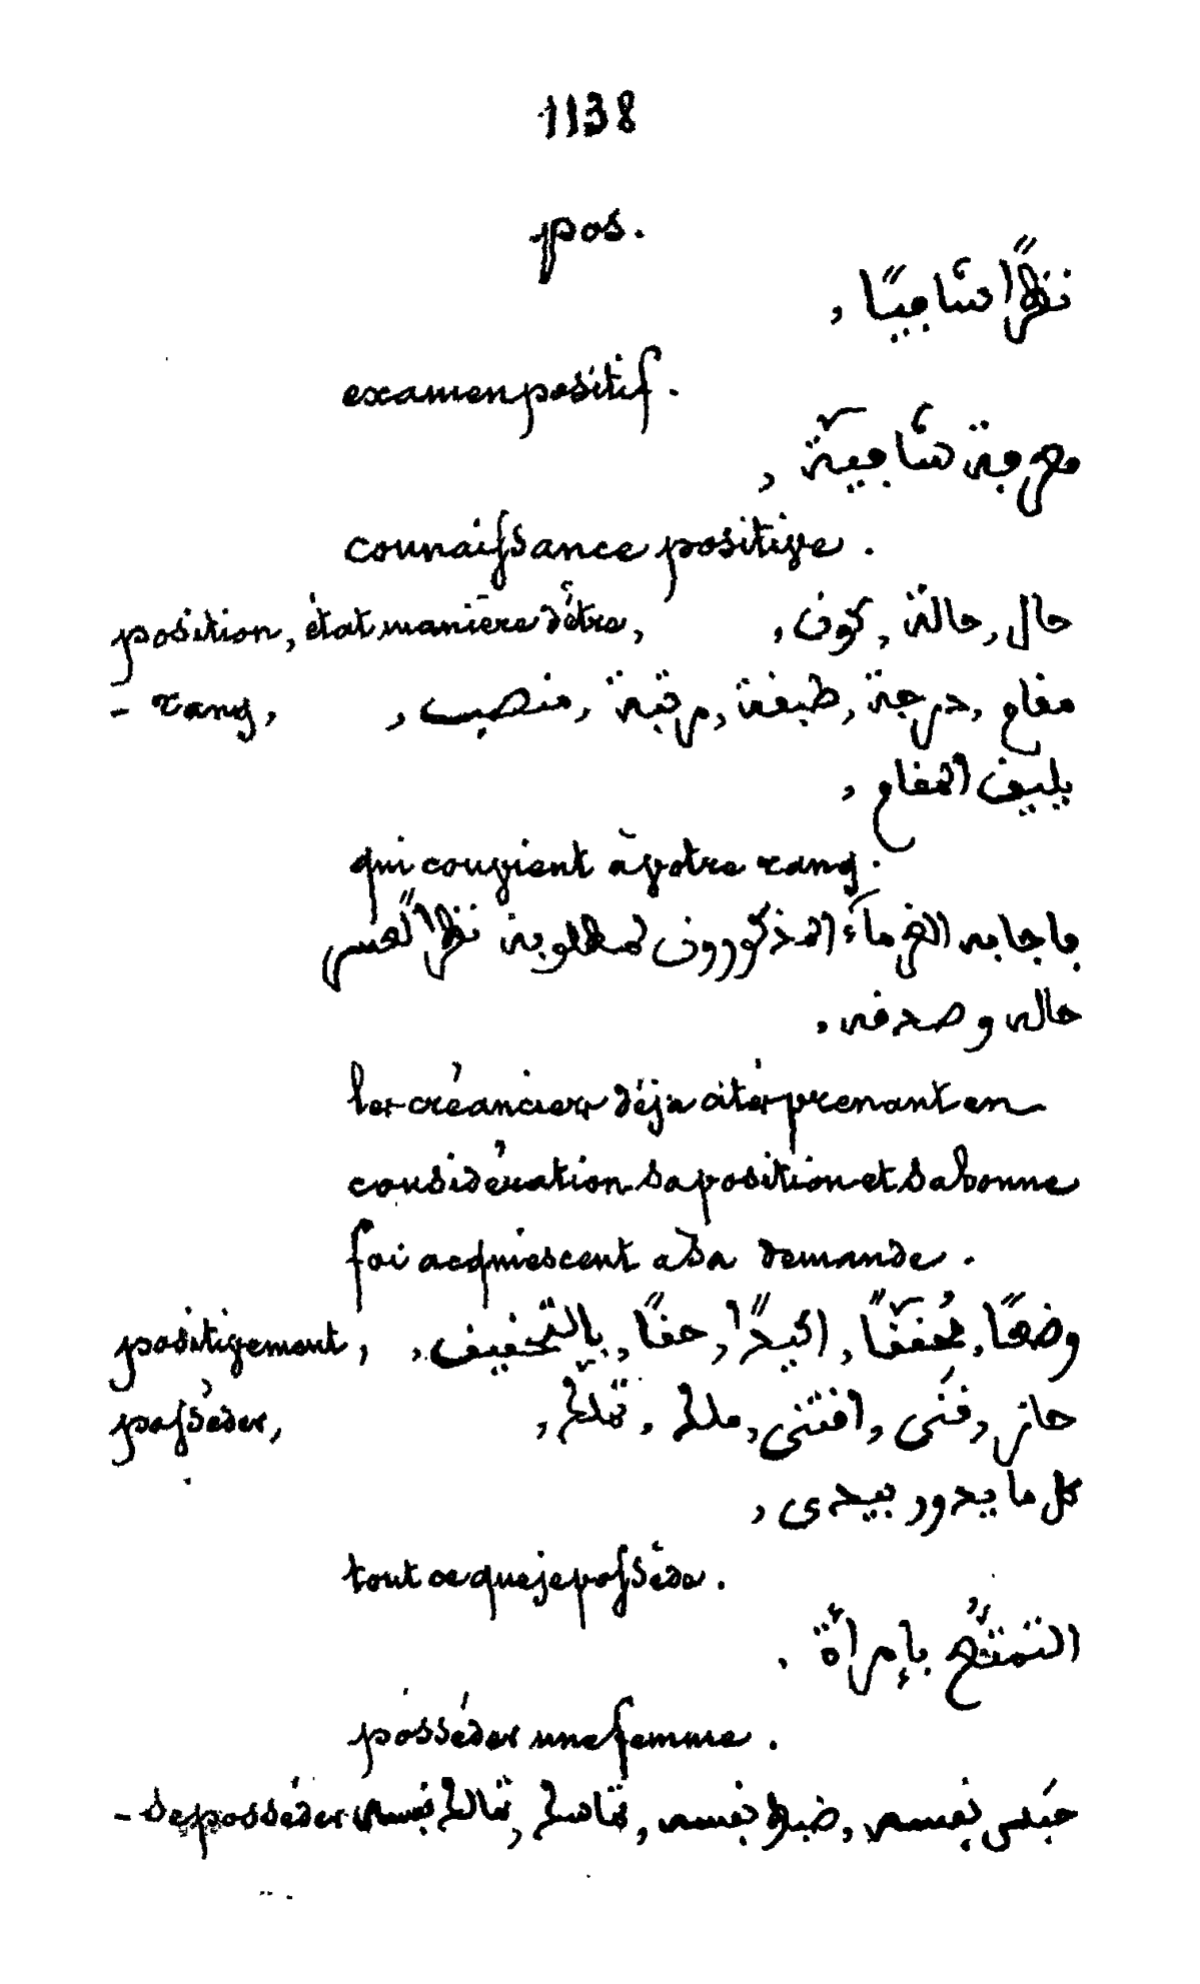 1138
pos.
نظرًا شافيًا,
examen positif.
معرفة شافيّة,
connaissance positive.
position, état manière d'être, حال, حالة, كون,
- rang, مقام, درجة, طبقة, مرتبة, منصب,
يليق المقام,
qui convient à votre rang.
فاجابه الغرمآء المذكورون لمطلوبه نظرًا لعسر
حاله وصدقه,
les créanciers déja citès prenant en
considération sa position et sa bonne
foi acquiescent a sa demande.
positivement, وضعًا, مُحققًّا, اكيدًا, حقًا, بالتّحقيق,
possèder, حاز, قنَى, اقتنى, ملك, تملّك,
كل ما يدور بيدى,
tout ce que je possède.
التمتّع بإمرأة.
posséder une femme.
- se posséder حبَس نفسه, ضبط نفسه, تماسك, تمالك نفسه